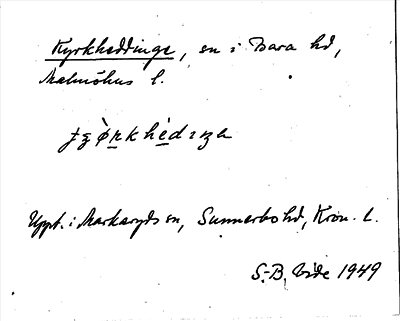 Kyrkheddinge, sn i Bara hd,
Malmöhus l.
Uppt. i Markaryds sn, Sunnerbo hd, Kron. l.
S.-B. Vide 1949